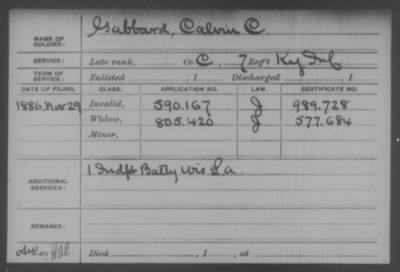 NAME OF SOLDIER: Gabbard, Calvin C.
SERVICE: Late rank, Co. C, 7 Reg't Ky Inf
TERM OF SERVICE: Enlisted , 1 Discharged , 1
DATE OF FILING. CLASS. APPLICATION NO. LAW. CERTIFICATE NO.
1886 Nov 29 Invalid, 590.167 J 989.728
Widow, 805.420 J 577.684
Minor,
ADDITIONAL SERVICES: 1 Indpt Batty Wis. L.a.
REMARKS:
Died , 1 , at